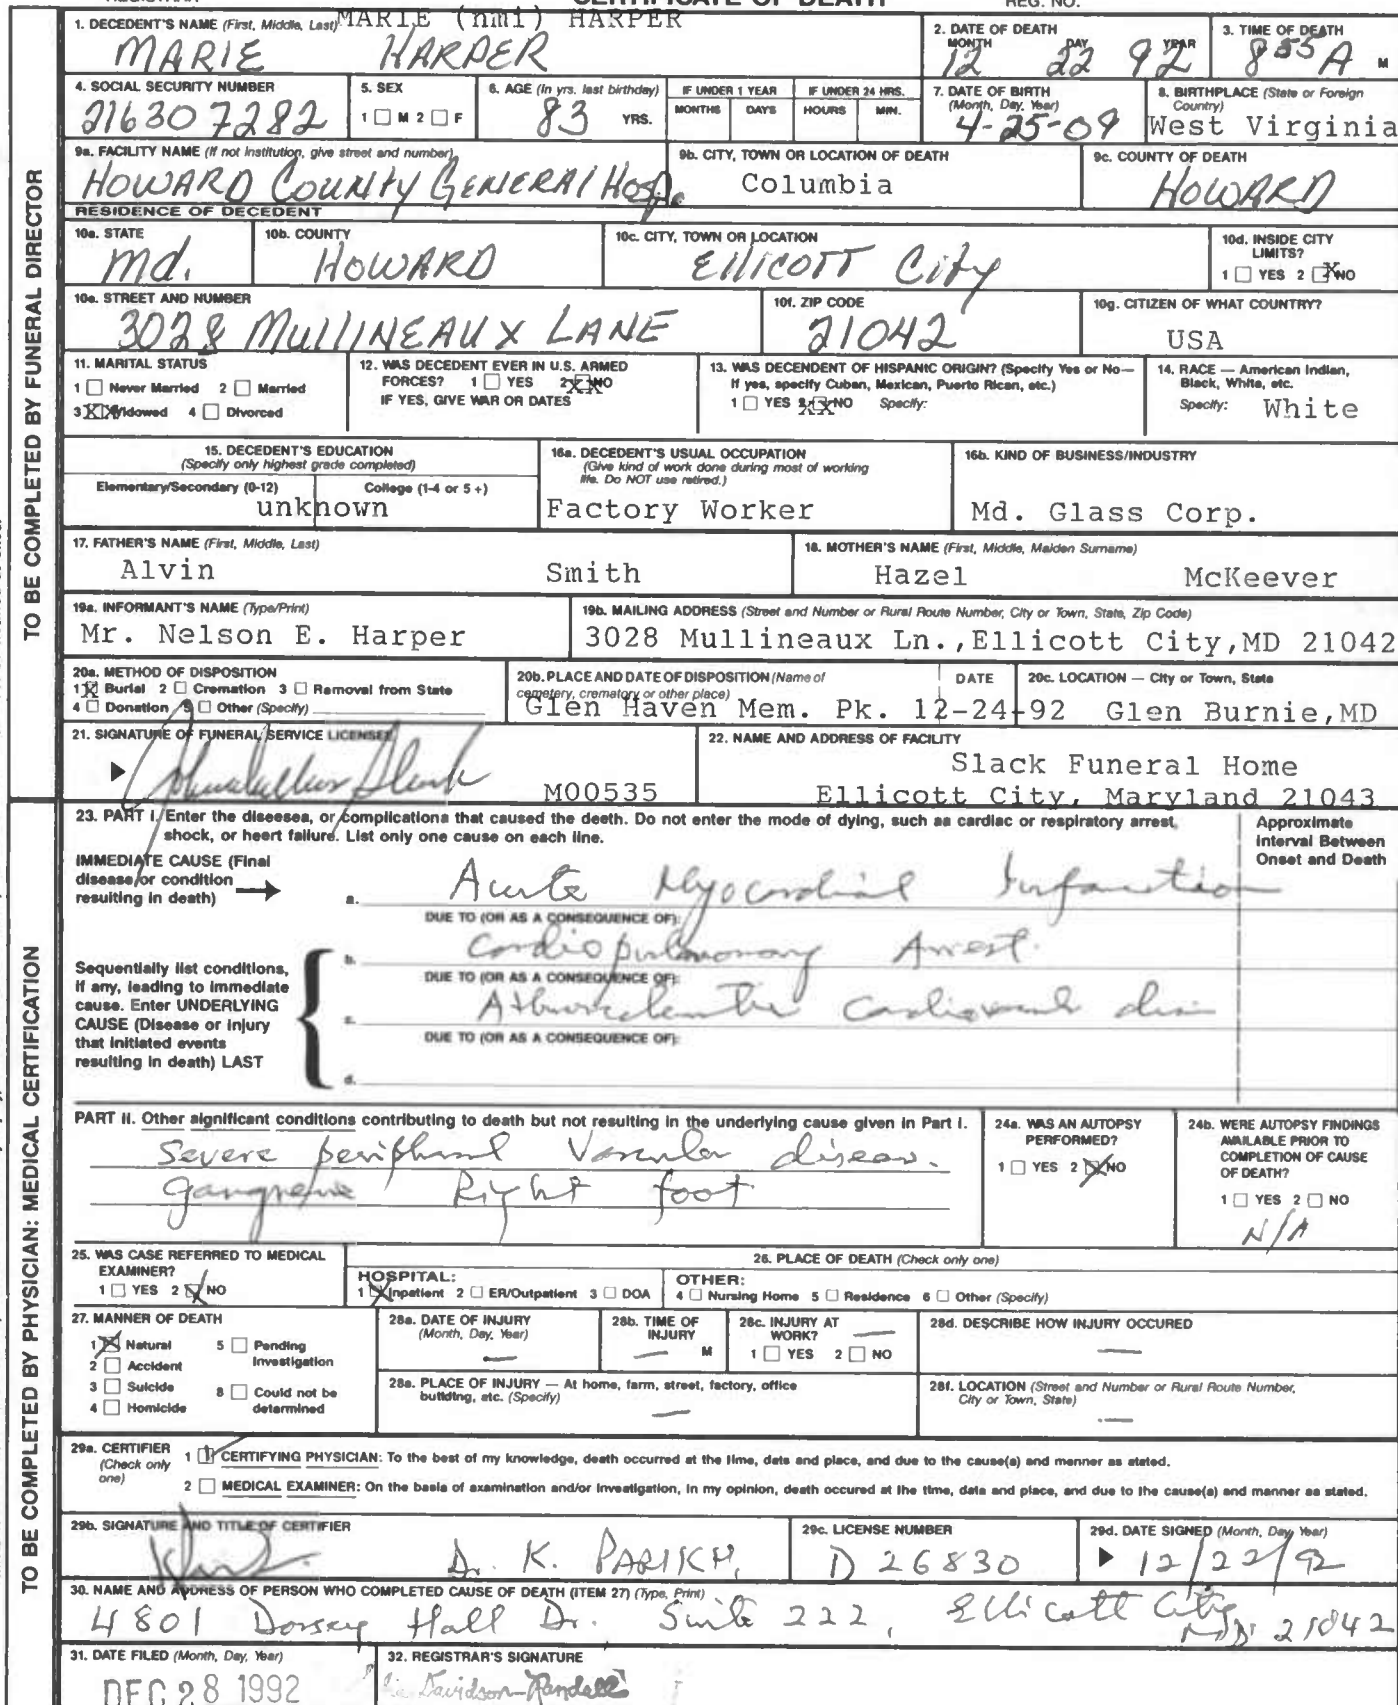 CERTIFICATE OF DEATH
REGISTRAR REG. NO.
1. DECEDENT'S NAME (First, Middle, Last) MARIE (nmi) HARPER
MARIE HARPER
2. DATE OF DEATH
MONTH DAY YEAR
12 22 92
3. TIME OF DEATH
8 55 A M
4. SOCIAL SECURITY NUMBER
216307282
5. SEX
1 M 2 F
6. AGE (In yrs. last birthday)
83 YRS.
IF UNDER 1 YEAR
MONTHS DAYS
IF UNDER 24 HRS.
HOURS MIN.
7. DATE OF BIRTH
(Month, Day, Year)
4-25-09
8. BIRTHPLACE (State or Foreign
Country)
West Virginia
9a. FACILITY NAME (If not institution, give street and number)
HOWARD COUNTY GENERAL HOSP.
9b. CITY, TOWN OR LOCATION OF DEATH
Columbia
9c. COUNTY OF DEATH
HOWARD
RESIDENCE OF DECEDENT
10a. STATE
Md.
10b. COUNTY
HOWARD
10c. CITY, TOWN OR LOCATION
Ellicott City
10d. INSIDE CITY
LIMITS?
1 YES 2 X NO
10e. STREET AND NUMBER
3028 MULLINEAUX LANE
10f. ZIP CODE
21042
10g. CITIZEN OF WHAT COUNTRY?
USA
11. MARITAL STATUS
1 Never Married 2 Married
3 XX Widowed 4 Divorced
12. WAS DECEDENT EVER IN U.S. ARMED
FORCES? 1 YES 2 XX NO
IF YES, GIVE WAR OR DATES
13. WAS DECENDENT OF HISPANIC ORIGIN? (Specify Yes or No—
If yes, specify Cuban, Mexican, Puerto Rican, etc.)
1 YES 2 XX NO Specify:
14. RACE — American Indian,
Black, White, etc.
Specify: White
15. DECEDENT'S EDUCATION
(Specify only highest grade completed)
Elementary/Secondary (0-12) College (1-4 or 5+)
unknown
16a. DECEDENT'S USUAL OCCUPATION
(Give kind of work done during most of working
life. Do NOT use retired.)
Factory Worker
16b. KIND OF BUSINESS/INDUSTRY
Md. Glass Corp.
17. FATHER'S NAME (First, Middle, Last)
Alvin Smith
18. MOTHER'S NAME (First, Middle, Maiden Surname)
Hazel McKeever
19a. INFORMANT'S NAME (Type/Print)
Mr. Nelson E. Harper
19b. MAILING ADDRESS (Street and Number or Rural Route Number, City or Town, State, Zip Code)
3028 Mullineaux Ln.,Ellicott City,MD 21042
20a. METHOD OF DISPOSITION
1 X Burial 2 Cremation 3 Removal from State
4 Donation 5 Other (Specify)
20b. PLACE AND DATE OF DISPOSITION (Name of
cemetery, crematory or other place)
DATE
Glen Haven Mem. Pk. 12-24-92
20c. LOCATION — City or Town, State
Glen Burnie,MD
21. SIGNATURE OF FUNERAL SERVICE LICENSEE
M00535
22. NAME AND ADDRESS OF FACILITY
Slack Funeral Home
Ellicott City, Maryland 21043
TO BE COMPLETED BY FUNERAL DIRECTOR
23. PART I. Enter the diseases, or complications that caused the death. Do not enter the mode of dying, such as cardiac or respiratory arrest,
shock, or heart failure. List only one cause on each line.
Approximate
Interval Between
Onset and Death
IMMEDIATE CAUSE (Final
disease or condition
resulting in death)
a. Acute Myocardial Infarction
DUE TO (OR AS A CONSEQUENCE OF):
b. Cardiopulmonary Arrest.
DUE TO (OR AS A CONSEQUENCE OF):
c.
DUE TO (OR AS A CONSEQUENCE OF):
d.
Sequentially list conditions,
if any, leading to immediate
cause. Enter UNDERLYING
CAUSE (Disease or injury
that initiated events
resulting in death) LAST
PART II. Other significant conditions contributing to death but not resulting in the underlying cause given in Part I.
Severe peripheral Vascular disease.
gangrene Right foot
24a. WAS AN AUTOPSY
PERFORMED?
1 YES 2 X NO
24b. WERE AUTOPSY FINDINGS
AVAILABLE PRIOR TO
COMPLETION OF CAUSE
OF DEATH?
1 YES 2 NO
N/A
25. WAS CASE REFERRED TO MEDICAL
EXAMINER?
1 YES 2 NO
26. PLACE OF DEATH (Check only one)
HOSPITAL:
1 Inpatient 2 ER/Outpatient 3 DOA
OTHER:
4 Nursing Home 5 Residence 6 Other (Specify)
27. MANNER OF DEATH
1 Natural 5 Pending
Investigation
2 Accident
3 Suicide 8 Could not be
determined
4 Homicide
28a. DATE OF INJURY
(Month, Day, Year)
—
28b. TIME OF
INJURY
— M
28c. INJURY AT
WORK? —
1 YES 2 NO
28d. DESCRIBE HOW INJURY OCCURED
—
28e. PLACE OF INJURY — At home, farm, street, factory, office
building, etc. (Specify)
—
28f. LOCATION (Street and Number or Rural Route Number,
City or Town, State)
—
29a. CERTIFIER
(Check only
one)
1 CERTIFYING PHYSICIAN: To the best of my knowledge, death occurred at the time, date and place, and due to the cause(s) and manner as stated.
2 MEDICAL EXAMINER: On the basis of examination and/or investigation, in my opinion, death occured at the time, date and place, and due to the cause(s) and manner as stated.
29b. SIGNATURE AND TITLE OF CERTIFIER
Dr. K. PARIKH,
29c. LICENSE NUMBER
D 26830
29d. DATE SIGNED (Month, Day, Year)
12/22/92
30. NAME AND ADDRESS OF PERSON WHO COMPLETED CAUSE OF DEATH (ITEM 27) (Type, Print)
4801 Dorsey Hall Dr. Suite 222, Ellicott City
MD 21042
31. DATE FILED (Month, Day, Year)
DEC 28 1992
32. REGISTRAR'S SIGNATURE
Davidson-Randall
TO BE COMPLETED BY PHYSICIAN: MEDICAL CERTIFICATION